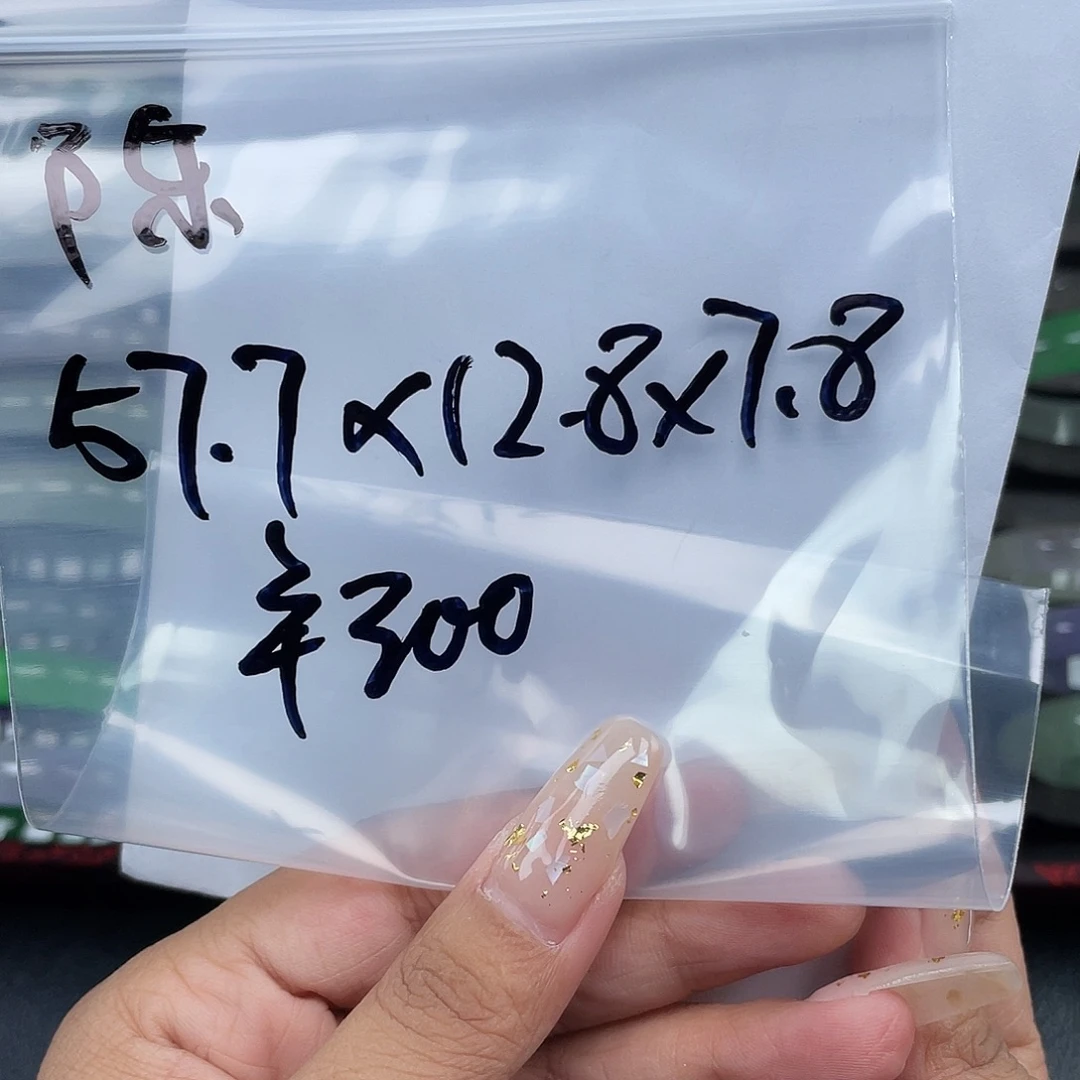 57.7×12.8×7.8
¥300